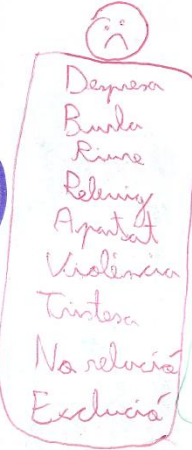 Despresa
Burla
Riure
Relenig
Apartat
Violència
Tristesa
No relació
Exclució